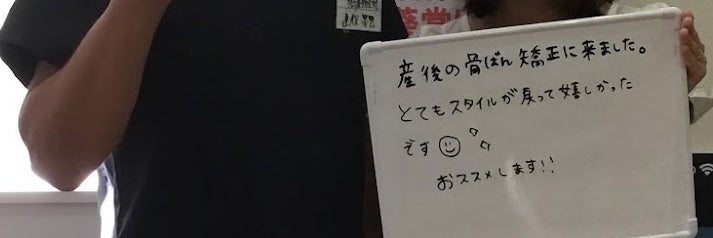 産後の骨ばん矯正に来ました。
とてもスタイルが戻って嬉しかった
です
おススメします!!